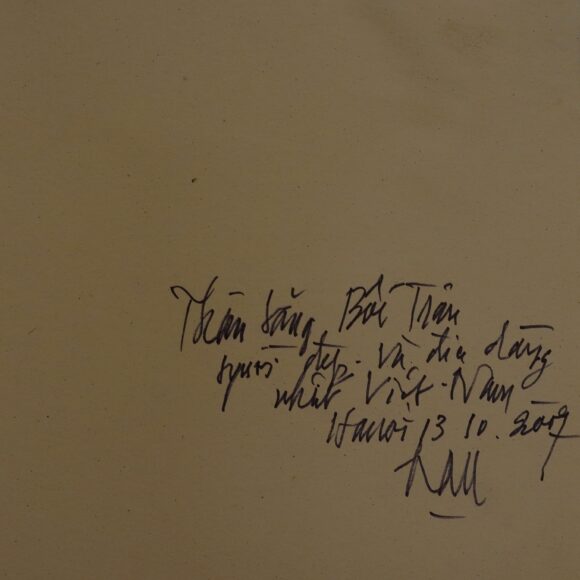 Thân tặng Bối Trân
người đẹp và dịu dàng
nhất Việt-Nam
Hanoi 13 10. 2009